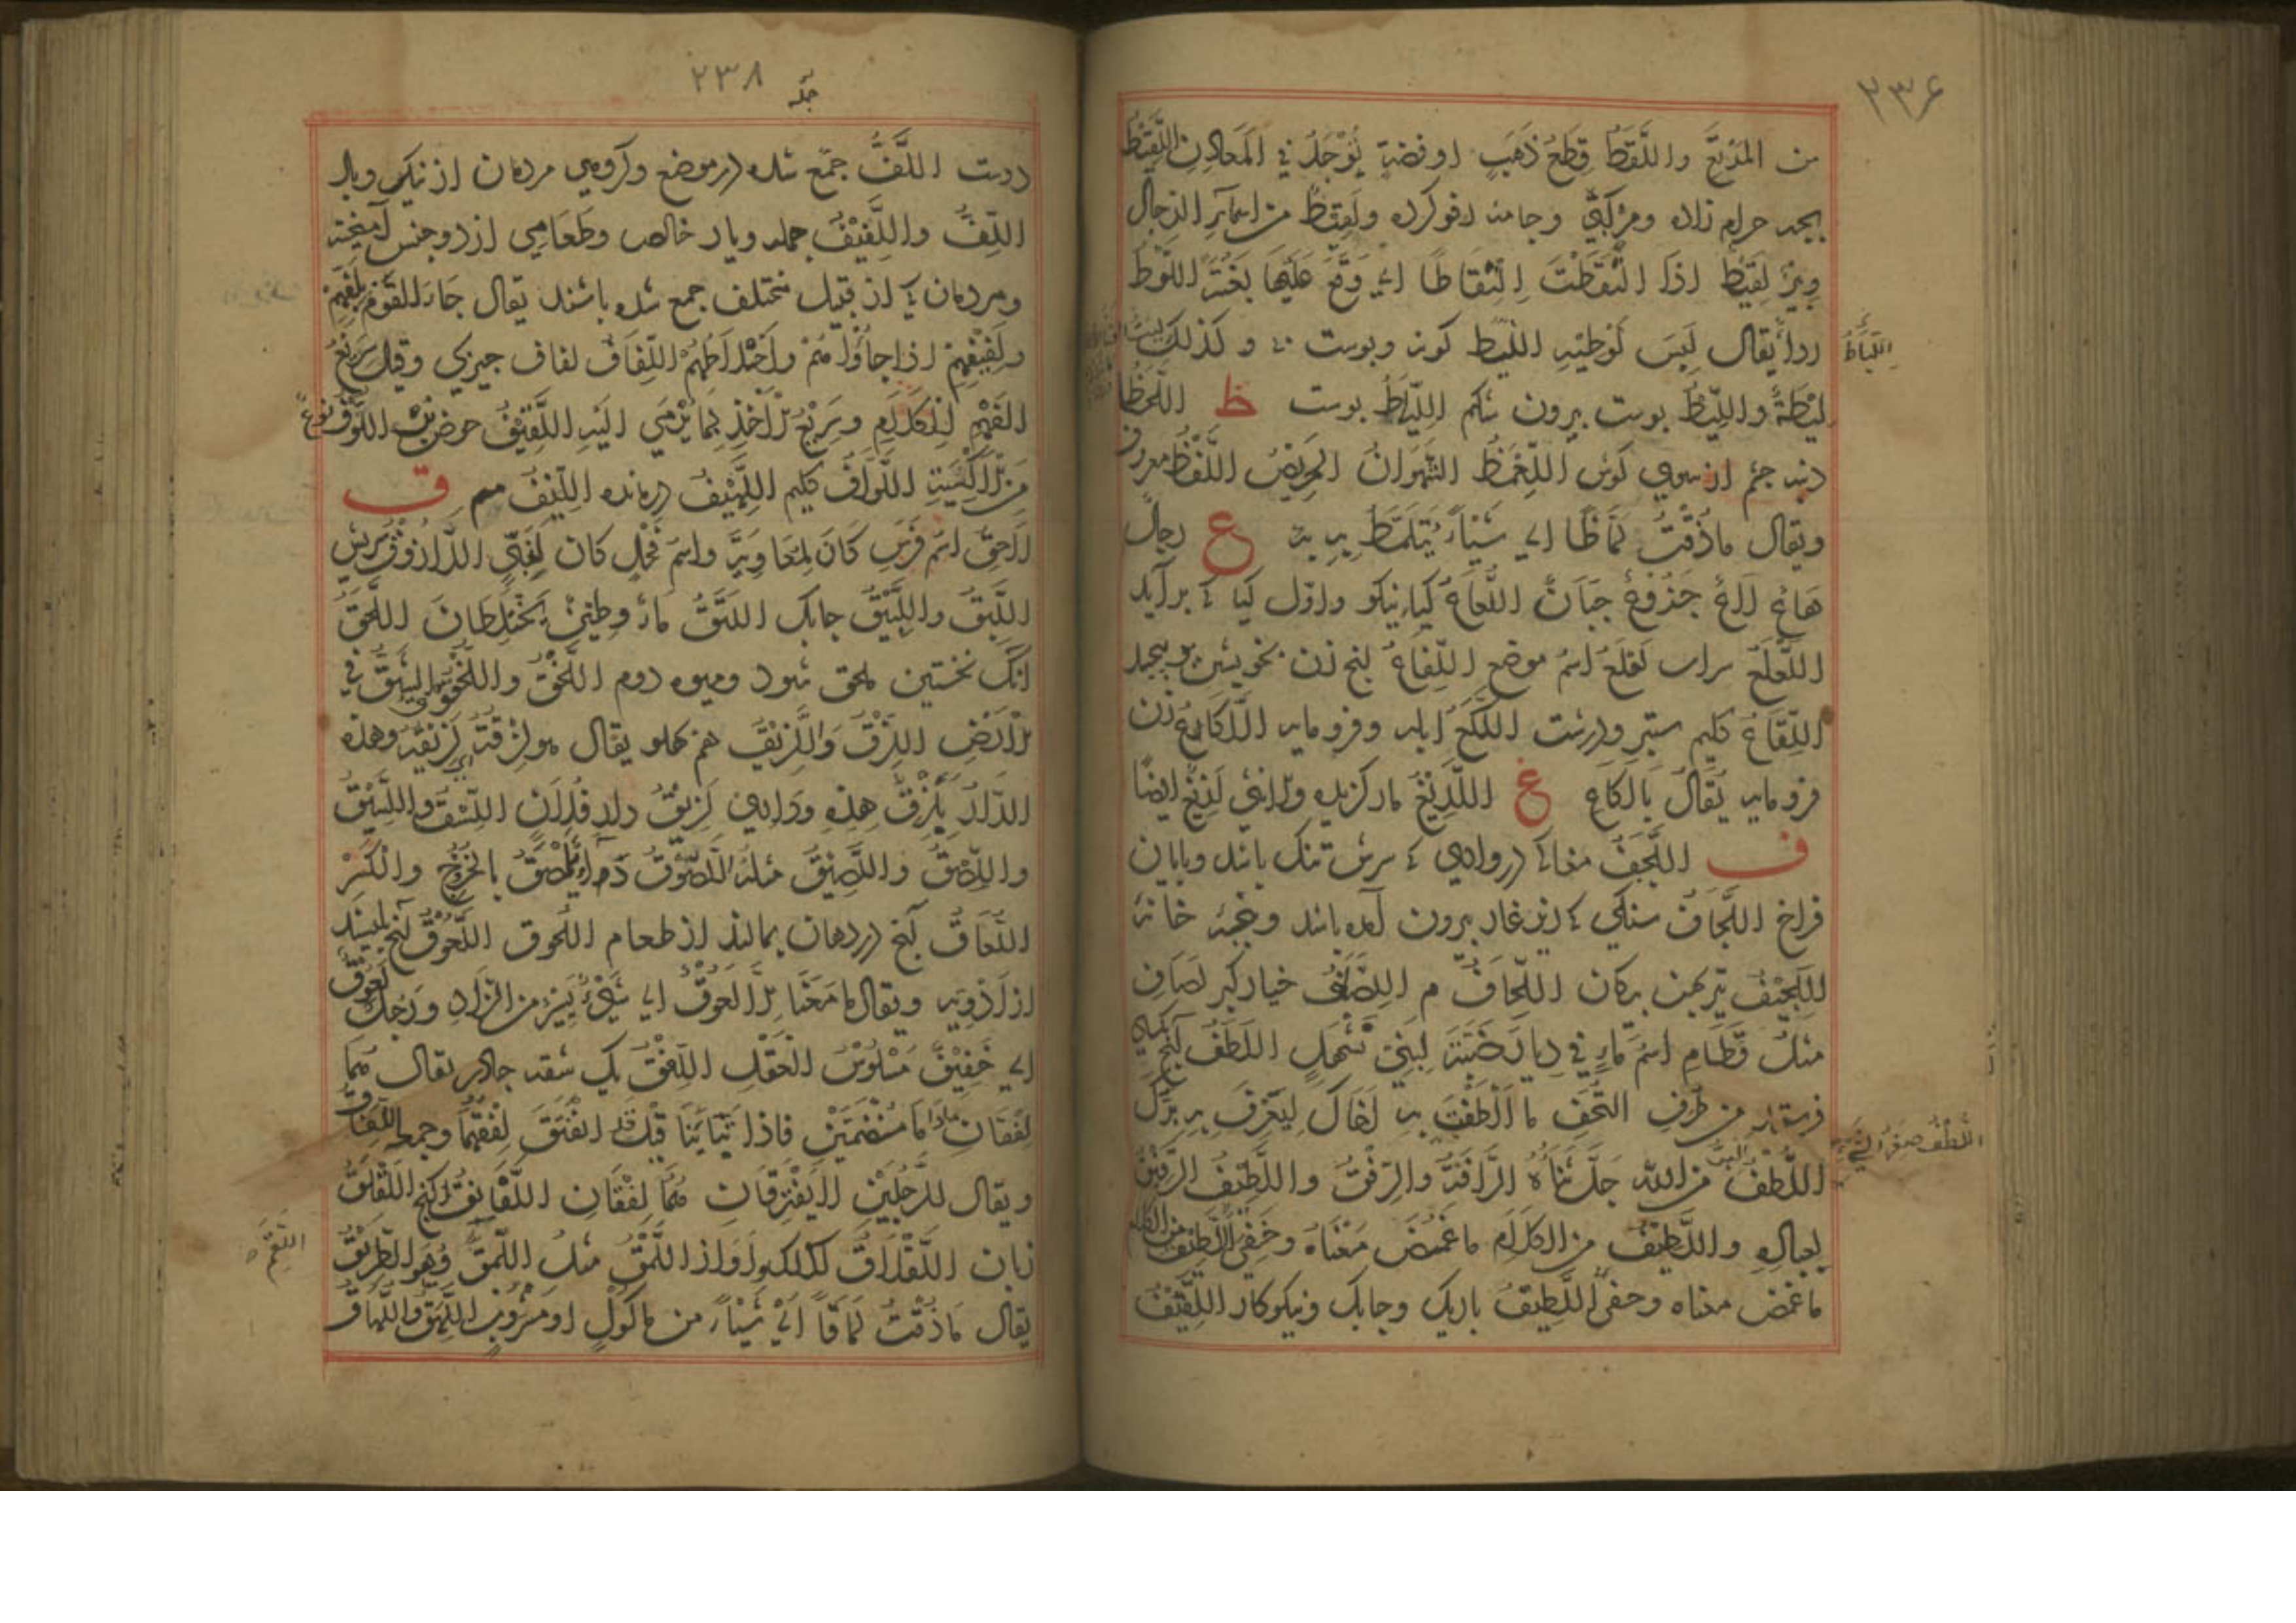 ۲۳۶
من المرتع واللَّقَطُ قِطَعُ ذَهَبٍ او فضةٍ يُوْجَدُ في المَعَادِنِ اللَّقِيْطُ
بچه حرام زاده وجامه رفو كرده ولَقِيْطٌ من اسماءِ الرجال
وبِئرٌ لقيطٌ اذا الْتُقِطَتْ اِلْتِقَاطًا اي وَقَعَ عَلَيْهَا بَغْتَةً اللَّوْطُ
ردا يقال لَبِسَ لَوْطَيْهِ اللِّيْطُ كونه وپوست وكذلك
لِيْطَةٌ واللِّيَاطُ پوست بيرون شكم اللِّيَاطُ پوست ظ اللَّحَاظُ
دنبه چشم از سوي گوش اللَّعْمَظُ الشَّهْوَانُ الحَرِيْصُ اللَّفْظُ معروف
ويقال ماذُقْتُ لَمَاظًا اي شَيْئًا يُتَلَمَّظُ بِهِ ع رجلٌ
هَاعٌ لَاعٌ جَبَانٌ اللُّعَاعُ گياه نيكو واول گيا كه برآيد
اللَّعْلَعُ سراب لَعْلَعُ اسمُ موضع اللِّفَاعُ آنچ زن بخويشتن پيچد
اللِّقَاعُ گليم ستبر ودرشت اللُّكَعُ ابله وفرومايه اللَّكَاعِ زن
فرومايه يُقَالُ يالكاعِ غ اللَّدِيْغُ مار گزيده والانثى لَدِيْغٌ ايضًا
ف اللَّجَفُ مغاك در وادي كه سرش تنگ باشد وپايان
فراخ اللِّجَافُ سنگي كه از غار بيرون آمده باشد خانه
اللَّجِيْفُ تير پهن پيكان اللِّحَافُ م اللَّصَفُ خيار كبر لَصَافِ
مثلُ قَطَامِ اسمُ ماءٍ في ديار ضَبَّةَ لِبَنِيْ نَهْشَلٍ اللَّطَفُ آنچ
فرستند من طُرَفِ التُّحَفِ ما اَلْطَفْتَ به اَخَاكَ لِيَعْرِفَ بِهِ بِرَّكَ
اللُّطْفُ من الله جَلَّ ثَنَاؤُهُ الرَّأْفَةُ والرِّفْقُ واللَّطِيْفُ الرَّفِيْقُ
بعباده واللَّطِيْفُ من الكَلَامِ ما غَمُضَ مَعْنَاهُ وخَفِيَ
ما غمض معناه وخفي اللَّطِيْفُ باريك وچابك ونيكوكار اللَّقِيْفُ
اللِّيَاطُ
اللُّطْفُ صِغَرُ الشَّيْءِ
۲۳۸
درست اللَّفُّ جمع شده در موضع وگروهي مردمان از نيك وبد
اللِّفُّ واللَّفِيْفُ جمله ويار خالص وطَعَامي از دو جنس آميخته
ومردمان كه از قبيل مختلف جمع شده باشند يقال جَاءَ القَوْمُ بِلَفِّهِمْ
ولَفِيْفِهِمْ اذا جاؤُا هُمْ واَخْلَاطُهُمْ اللِّفَافُ لفاف چيزي وقيل سَرِيْعُ
الفَهْمِ لِلْكَلَامِ وسَرِيْعُ الْاَخْذِ لِمَا يُرْمَي اليه اللَّقِيْفُ حوض اللَّوْفُ نوعٌ
مِنَ الْاَكْسِيَةِ اللَّوَّافُ گليم اللَّهِيْفُ درمانده اللِّيْفُ م ق
لَاحِقٌ اسمُ فَرَسٍ كَانَ لِمُعَاوِيَةَ واسمُ فَحْلٍ كان لِغَنِيٍّ
اللَّبِقُ واللَّبِيْقُ چابك اللَّثَقُ ماءٌ وطِيْنٌ يَخْتَلِطَانِ اللَّحَقُ
آنك نخستين ملحق شود وميوه دوم اللَّخْقُ واللُّخْقُوْقُ الشَّقُّ في
الْاَرْضِ اللِّزْقُ واللَّزِيْقُ هم پهلو يقال هو لِزْقَةُ لَزِيْقُهُ وهذه
الدَّارُ بِلِزْقِ هذِهِ ودَارِي لَزِيْقُ دار فلان اللِّسْقُ واللَّسِيْقُ
واللِّصْقُ واللَّصِيْقُ مثله اللَّصُوْقُ دواء يُلْصَقُ بالجُرُوْحِ والكَسْرِ
اللُّعَاقُ آنچ در دهان بماند از طعام اللَّعُوْقُ آنچ بليسند
از اَدْوِيَه ويقال ما مَعَنَا اِلَّا لَعُوْقٌ اي شَيْءٌ يَسِيْرٌ من الزَّادِ ورجل لَعْوَقٌ
اي خَفِيْفٌ مَسْلُوْسُ العَقْلِ اللِّفْقُ يك شقه چادر يقال هُمَا
لِفْقَانِ مادَامَا مُنْضَمَّيْنِ فاذا تَبَايَنَا قِيْلَ قد انْفَتَقَ لِفْقُهُمَا وجمعه اللِّفَاقُ
ويقال للرَّجُلَيْنِ لَا يَفْتَرِقَانِ هُمَا لِفْقَانِ
زبان اللَّقْلَاقُ لكلك وآواز اللَّمْقُ مثل اللَّمَقِ وهو الطَّرِيْقُ
يقال مَاذُقْتُ لَمَاقًا اي شَيْئًا من مَاكُوْلٍ اومَشْرُوْبٍ اللَّهَقُ واللَّهَاقُ